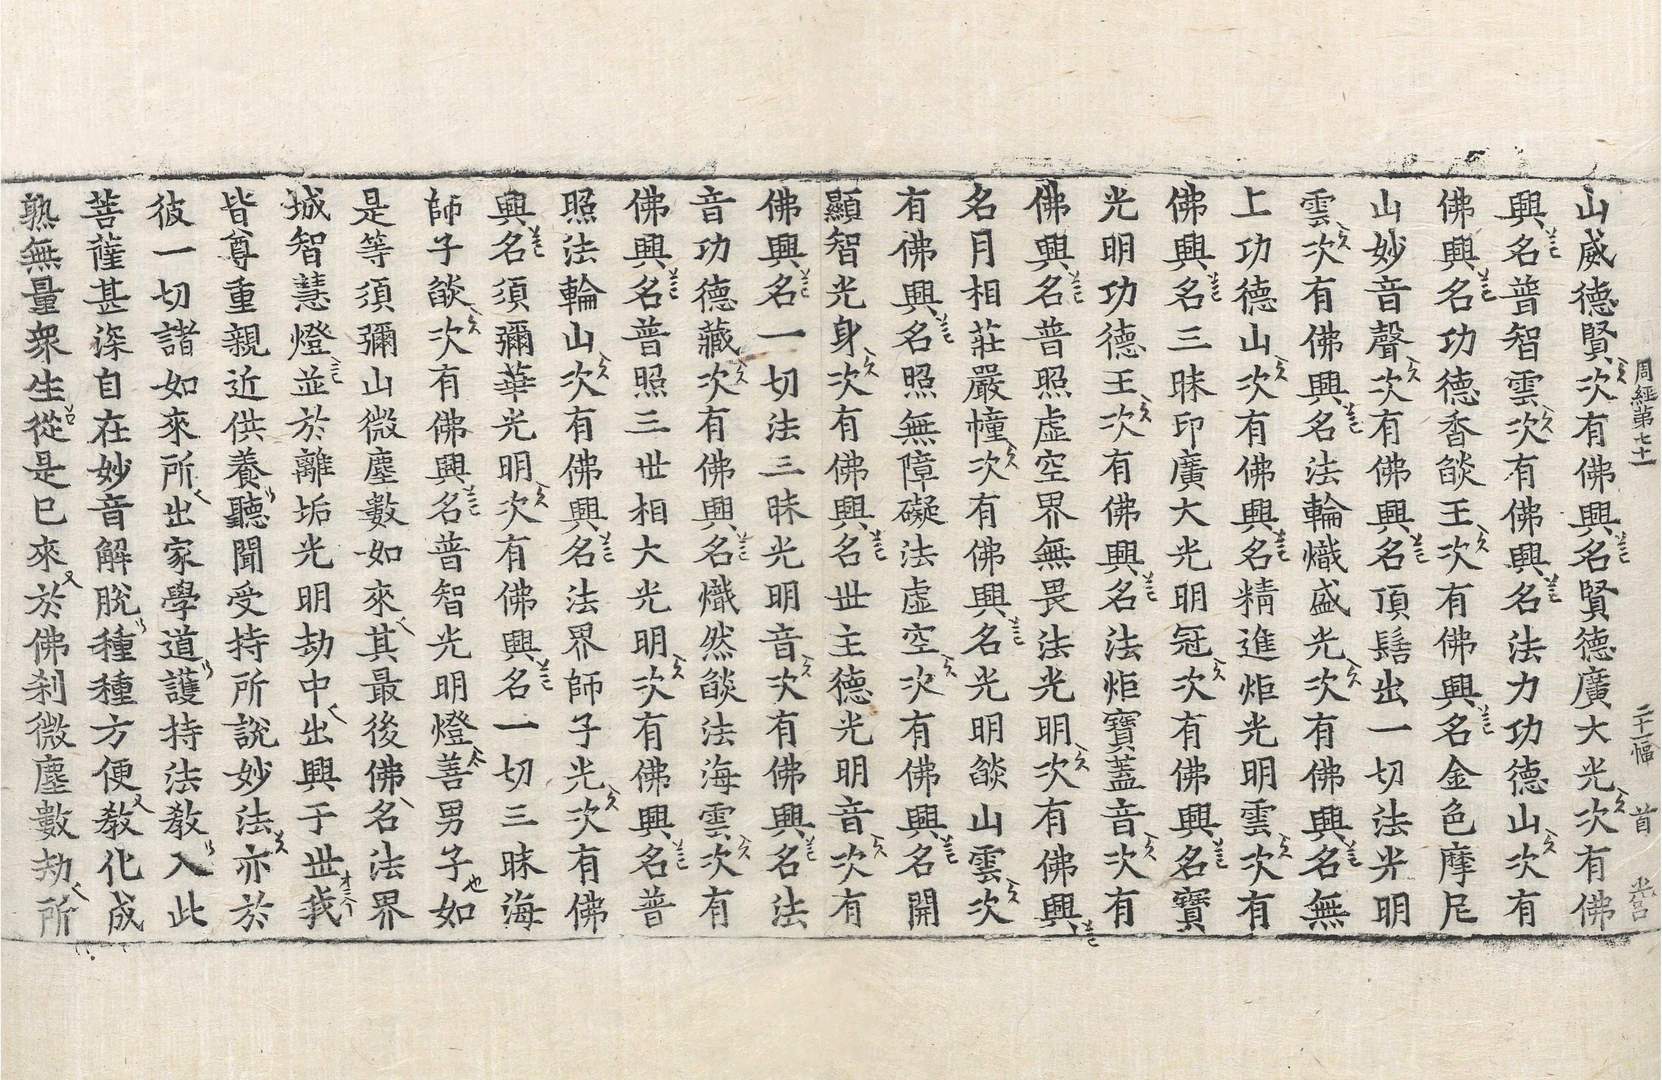 周經第七十一 二十一幅 首
山威德賢次有佛興名賢德廣大光次有佛
興名普智雲次有佛興名法力功德山次有
佛興名功德香燄王次有佛興名金色摩尼
山妙音聲次有佛興名頂髻出一切法光明
雲次有佛興名法輪熾盛光次有佛興名無
上功德山次有佛興名精進炬光明雲次有
佛興名三昧印廣大光明冠次有佛興名寶
光明功德王次有佛興名法炬寶蓋音次有
佛興名普照虛空界無畏法光明次有佛興
名月相莊嚴幢次有佛興名光明燄山雲次
有佛興名照無障礙法虛空次有佛興名開
顯智光身次有佛興名世主德光明音次有
佛興名一切法三昧光明音次有佛興名法
音功德藏次有佛興名熾然燄法海雲次有
佛興名普照三世相大光明次有佛興名普
照法輪山次有佛興名法界師子光次有佛
興名須彌華光明次有佛興名一切三昧海
師子燄次有佛興名普智光明燈善男子如
是等須彌山微塵數如來其最後佛名法界
城智慧燈並於離垢光明劫中出興于世我
皆尊重親近供養聽聞受持所說妙法亦於
彼一切諸如來所出家學道護持法教入此
菩薩甚深自在妙音解脫種種方便教化成
熟無量眾生從是已來於佛剎微塵數劫所